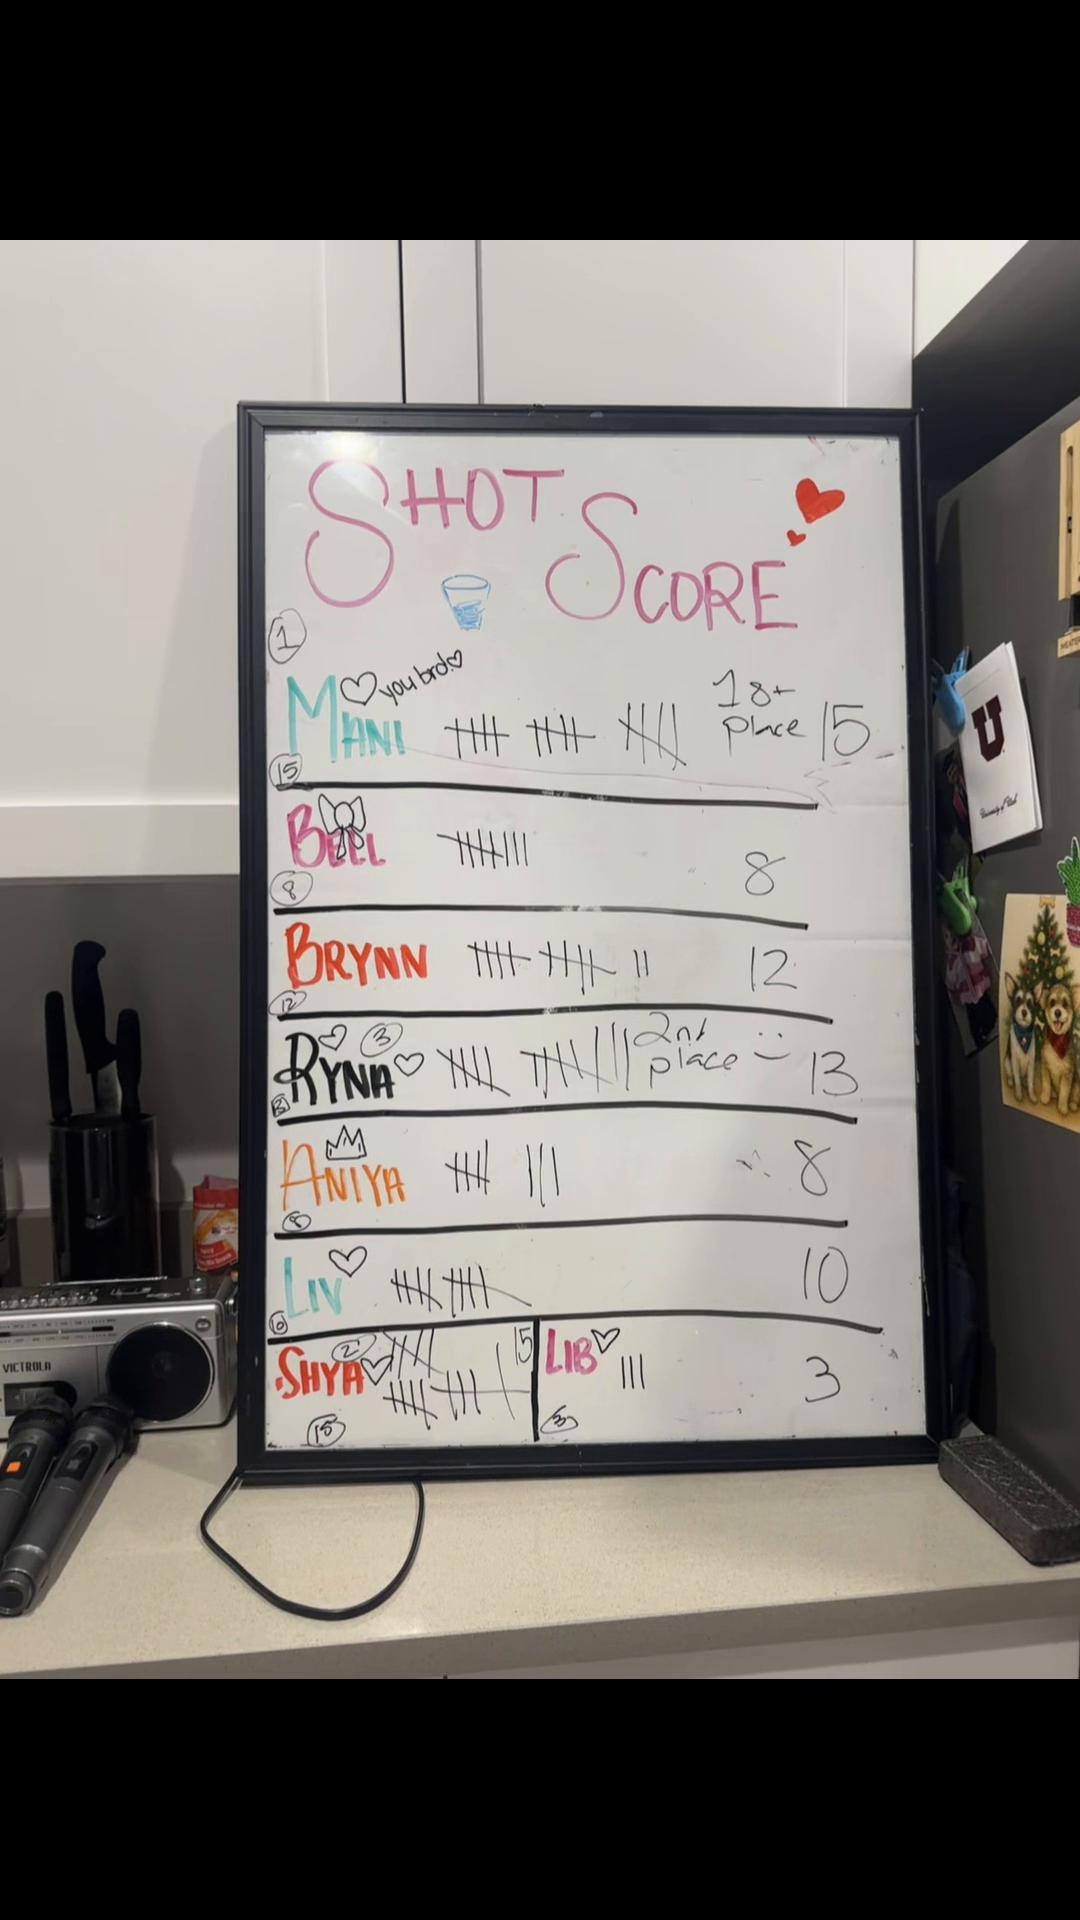 SHOT
SCORE
1
you bro!
MANI
1st place
15
15
BELL
8
8
BRYNN
12
12
3
RYNA
2nd place
13
ANIYA
8
8
LIV
10
10
2
SHYA
15
15
LIB
3
3
VICTROLA
U
University of Utah